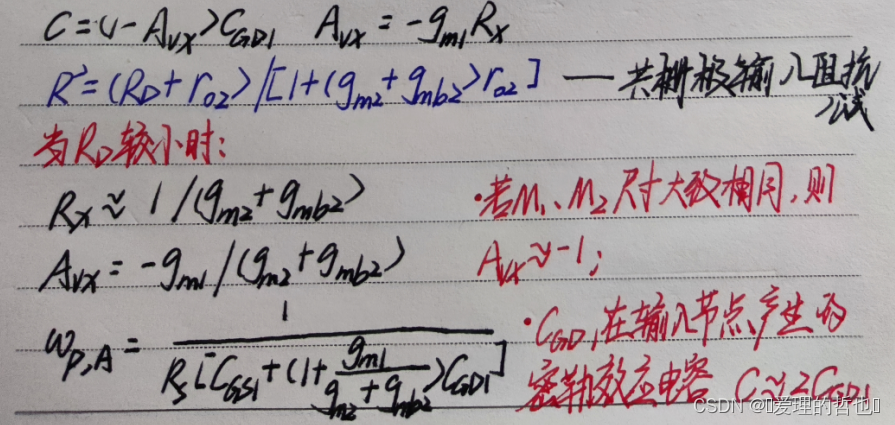 C=(1-A_VX)C_GD1 A_VX=-g_m1R_X
R=(R_D+r_o2)/[1+(g_m2+g_mb2)r_o2] — 共栅极输入阻抗
当R_D较小时:
R_X≈1/(g_m2+g_mb2)
·若M₁、M₂尺寸大致相同,则
A_VX=-g_m1/(g_m2+g_mb2)
A_VX≈-1;
ω_P,A=1/R_S[C_GS1+(1+g_m1/g_m2+g_mb2)C_GD1]
·C_GD1在输入节点产生的
密勒效应电容 C≈2C_GD1
CSDN @爱理的哲也